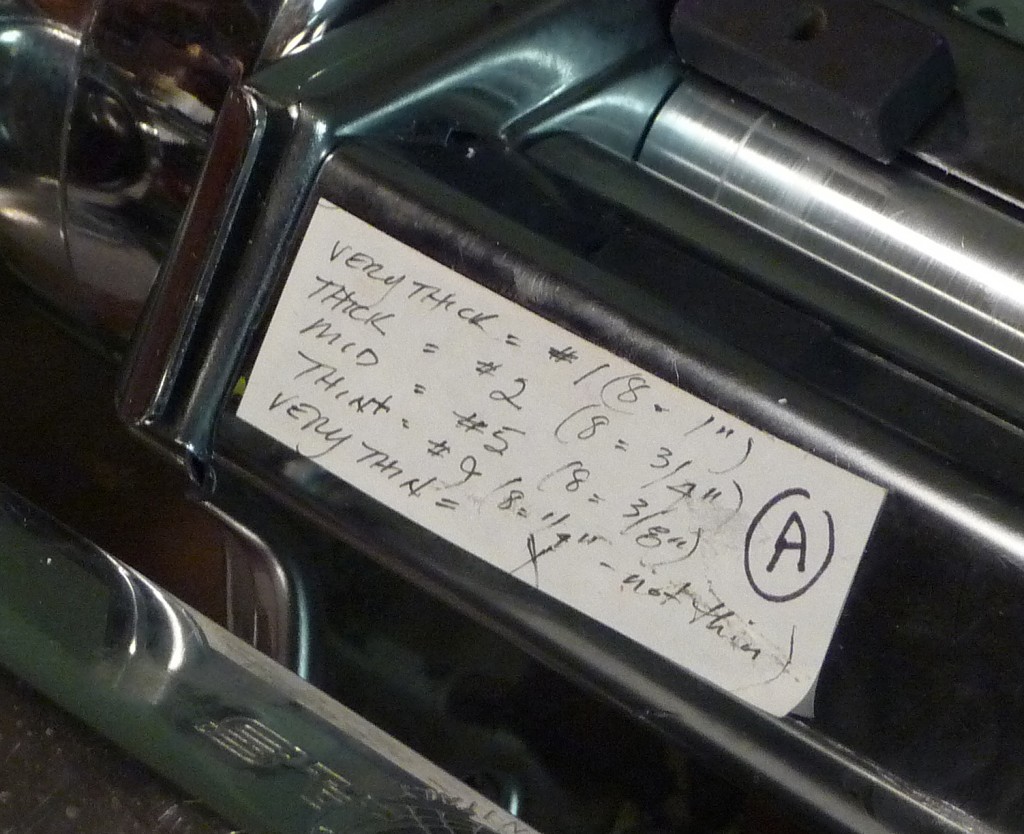 VERY THICK = #1 (8 = 1")
THICK = #2 (8 = 3/4")
MID = #5 (8 = 3/8")
THIN = #9 (8 = 1/4" - not thin)
VERY THIN = X
A